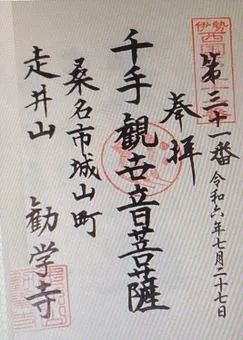 伊勢
西国三十一番
第三十一番
令和六年七月二十七日
奉拝
千手観世音菩薩
桑名市城山町
走井山 勧学寺